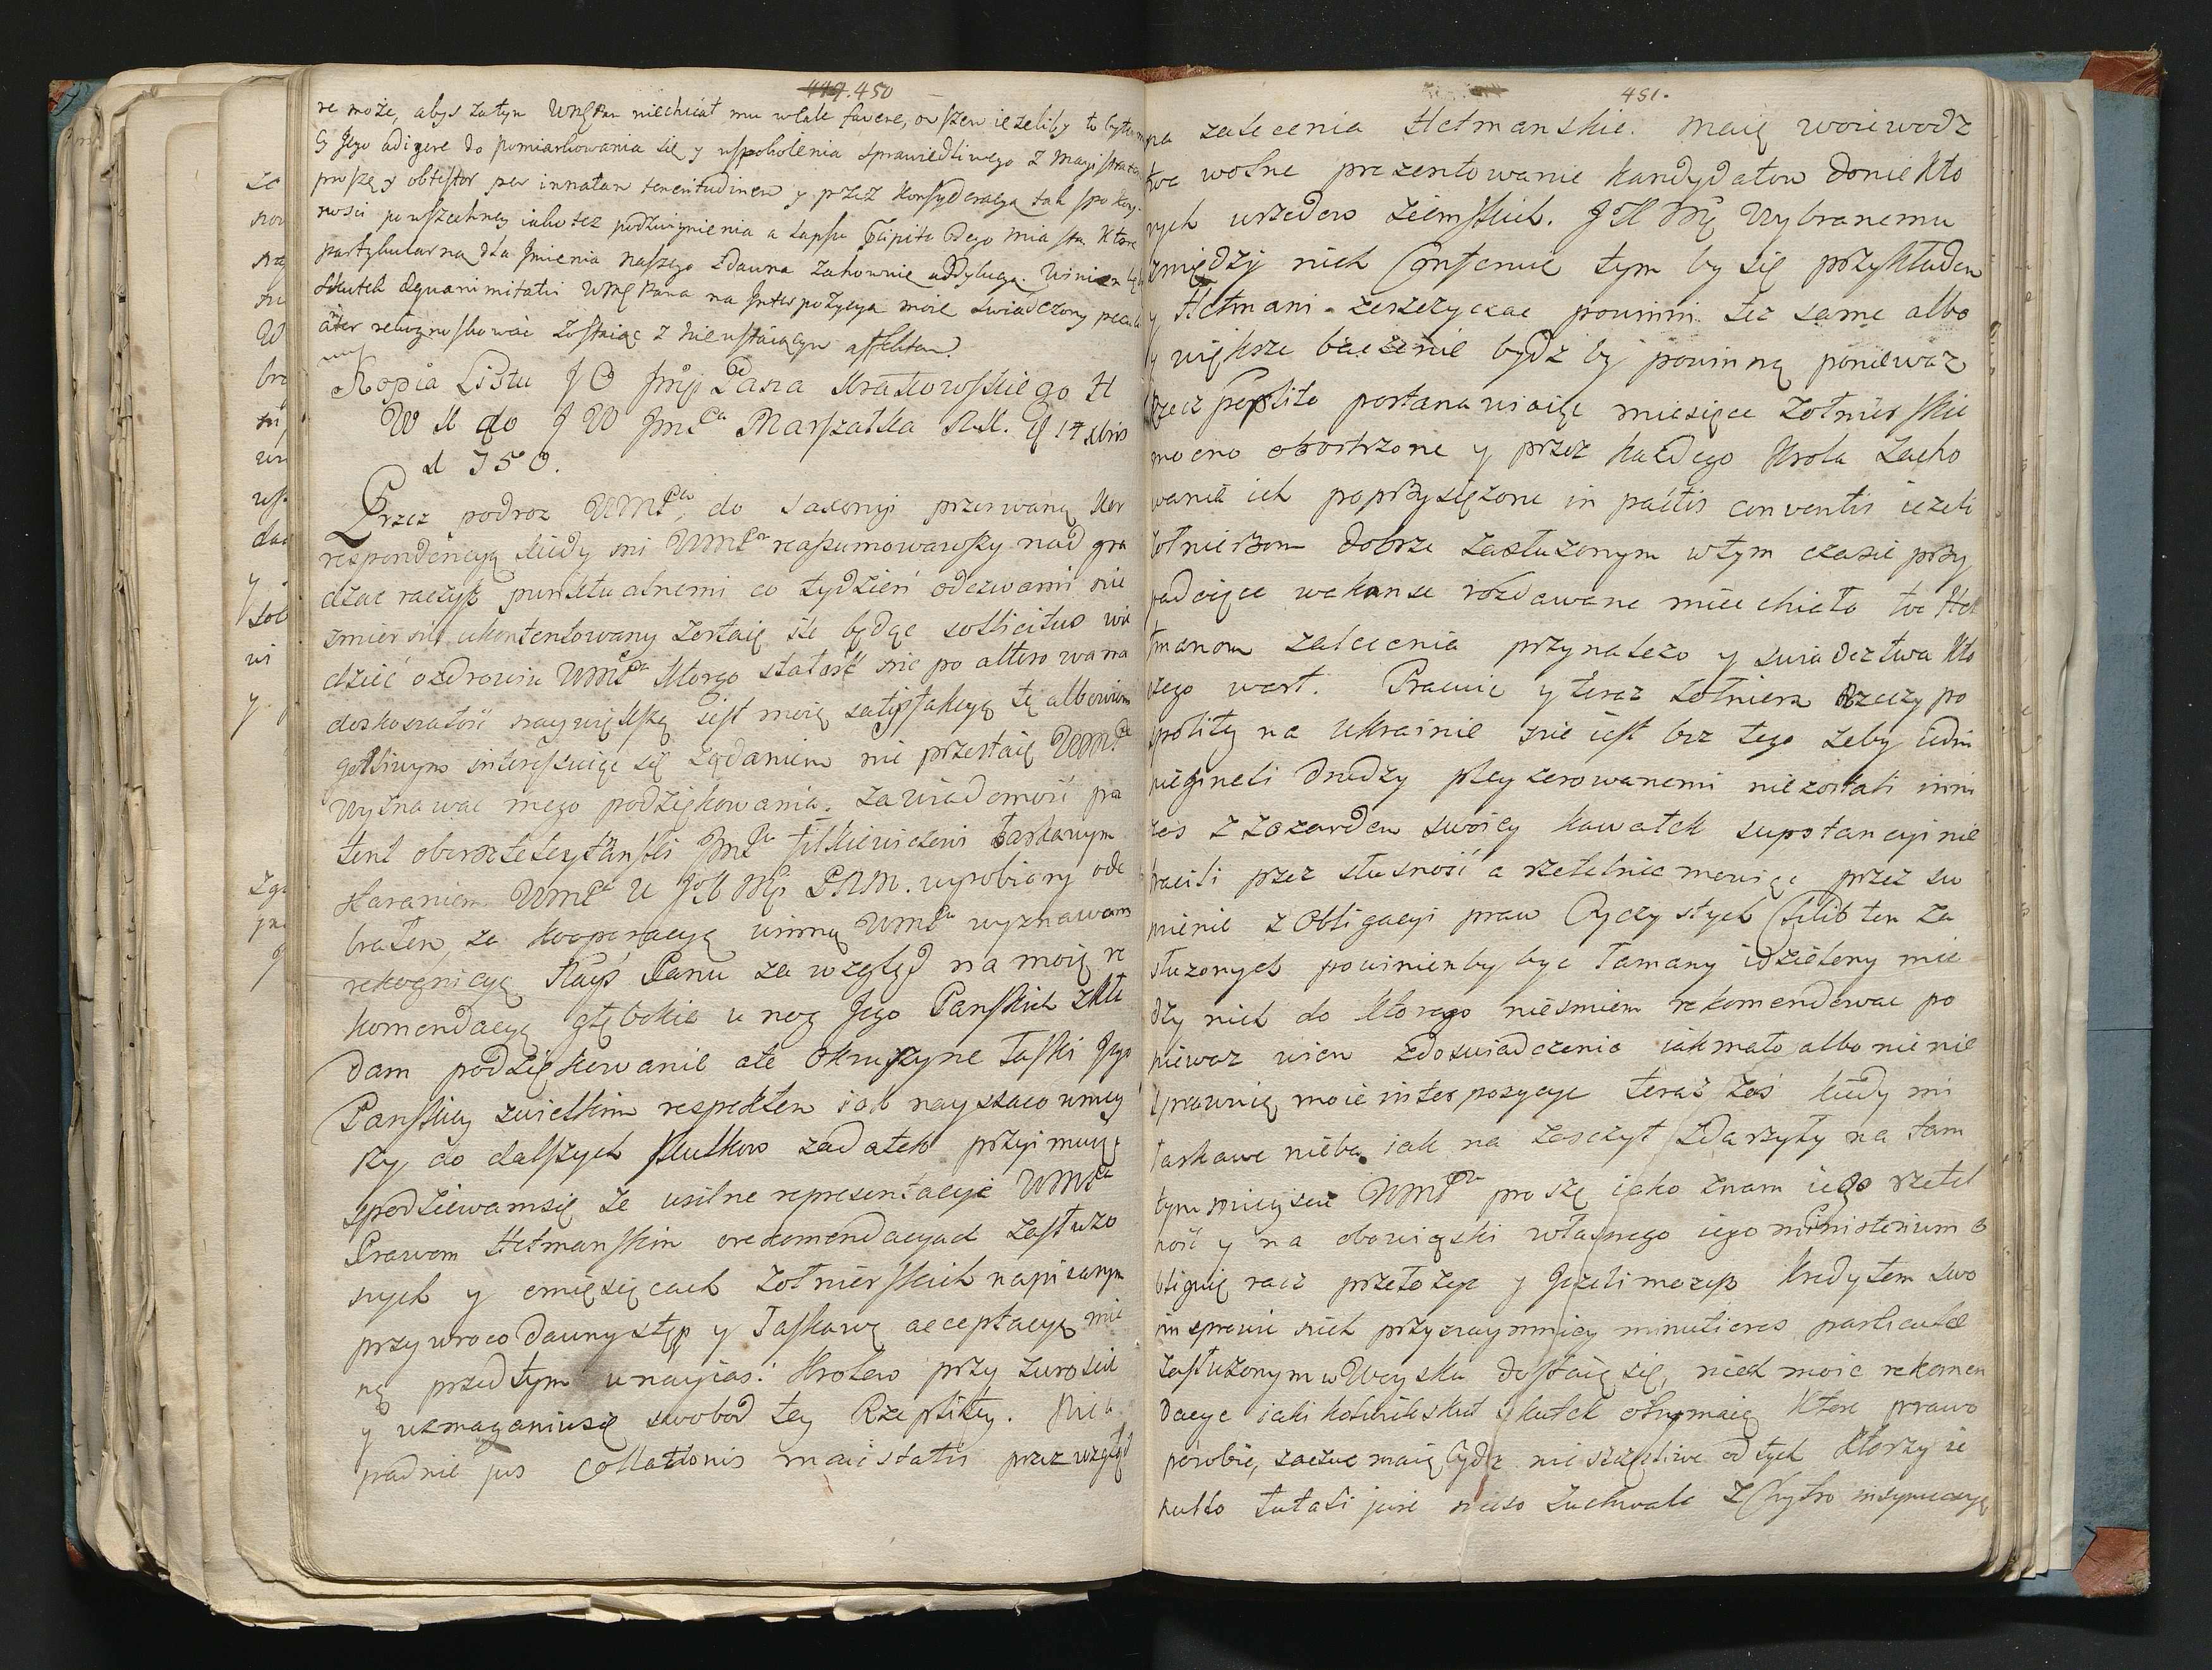 449. 450
re może, abyś zatym WMPan niechciał mu wtak favere, owszem ieżeliby to było
by Jego adigere do pomiarkowania się y uspokoienia sprawiedliwego z Magistratem
proszę y obtestor per innatam serenitudinem y przez konsyderacyą tak spokoy-
ności powszechney iako też podźwignienia a lapsu Miasta Które
partykularną dla Imienia Naszego zdawna zachownie addykuą. Winien
Skutek aequanimitatis WMPana na Interpozycyą moię świadczony
rekognoskować zostaiąc z nieustaiącym affektem.
Kopia Listu J O Jmci Pana Krakowskiego H
W K do J W Jmci Pana Marszałka N.K. D 14
A 1750.
Przez podroż WMPa do Saxonij przerwaną kor
respondencyą kiedy mi WMPan reassumowawszy nad gra
dzac raczysz punktualnemi co tydzień odezwami nie
zmiernie ukontentowany zostaię ile będąc sollicitus wie
dzieć ozdrowiu WMPa ktorego stałość nie po alterowana
doskonałość naywiększą iest moią satysfakcyą tę albowiem
gorliwym interessuiąc się żądaniem nie przestaię WMPa
Wyznawac mego podziękowania. Zawiadomość pa
tent oberszteleytański JmPa łaskawym
staraniem WMPa u JKMCi PNM. wyrobiony ode
brałem, za kooperacyą winną WMPa wyznawam
rekognicyą Nayś Panu za wzgląd na moię re
komendacyą głębokie u nog Jego Pańskich skła
dam podziękowanie ale okruszyne łaski Jego
Pańskiey zwielkim respektem iak nayszacownieyszy
szy do dalszych skutkow zadatek przyimuię
spodziewamsię że usilne representacyie WMPa
Prawem Hetmańskim orekomendacyach zasłuzo
nych y omięsięcach żołnierskich napisanym
przywroco dawny stęp y łaskawą acceptacyą mie
ną przedtym unayias: Krolow przy
y uzmaganiusię swobod tey Rzeplitey. Nie u
padnie jus Collationis maiestatis przez wzgląd
451.
na zalecenia Hetmanskie. maią woiewodz
twa wolne prezentowanie kandydatow doniekto
rych urzędow ziemskich. JKMć Wybranemu
zmiędzy nich Consenue tym by się przykładem
y Hetmani zeszczycac powinni też same albo
y większe baczenie bydz by powinną ponieważ
Rzecz pospolita postanawiaiąc miesiące żołnierskie
mocno obostrzone y przez każdego Krola zacho
wania ich poprzysiężone in pactis conventis ieżeli
żołnierzom dobrze zasłużonym wtym czasie przy
padaiące wakanse rozdawane miec chciała to Het
manom zalecenia przynależo y swiadectwa kto
czego wart. Prawie y teraz żołnierz Rzeczypo
spolitey na Ukrainie nie iest bez tego żeby iedni
nieginęli drudzy pleyzerowanemi niezostali inni
zas z zazardem swoiey kawałek supstancyi nie
tracili przez słusność a rzetelnie mowiąc przez su
mienie z obligacyi praw Oyczystych Chlib ten za
służonych powinienby byc łamany idzielony mie
dzy nich do ktorego niesmiem rekomendowac po
niewaz wiem zdoswiadczenia iakmało albo nienie
sprawuią moie interpozycye teraz zaś kiedy mi
łaskawe nieba iak na zasczyt zdarzyły na tam
tym mieysce WMPa proszę iako znam iego rzetel
ność y na obowiąski własnego iego ministerium o
bliguię racz przełozyc y Jezeli mozesz kredytem swo
im spraw niech przynaymniey minutiores particulae
zasłużonym w Woysku dostaią się, niech moie rekomen
dacye iaki kolwiek skutek otrzymaią Które prawo
porobie, zacżne maią bydz nieszczęśliwe od tych ktorzy ie
z Chytro insynuacyą